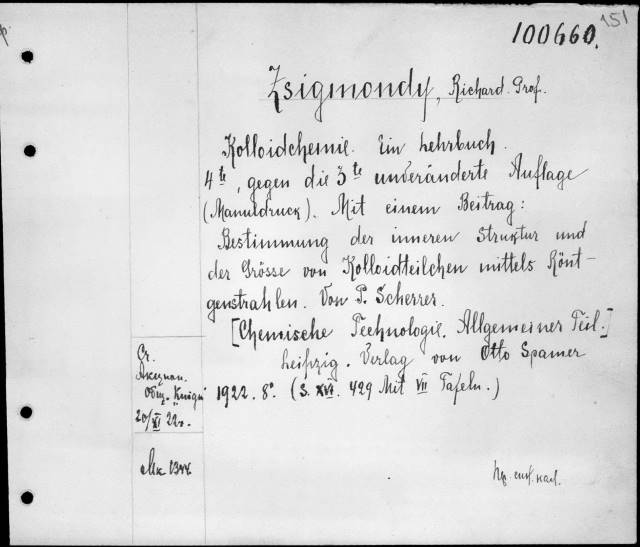 151
100660.
Zsigmondy, Richard. Prof.
Kolloidchemie. Ein Lehrbuch.
4te, gegen die 3te unveränderte Auflage
(Manuldruck). Mit einem Beitrag:
Bestimmung der inneren Struktur und
der Grösse von Kolloidteilchen mittels Rönt-
genstrahlen. Von P. Scherrer.
[Chemische Technologie. Allgemeiner Teil.]
Leipzig. Verlag von Otto Spamer
1922. 8°. (S. XVI. 429 Mit VII Tafeln.)
Cr.
Общ. "Книги"
20/XI 22.